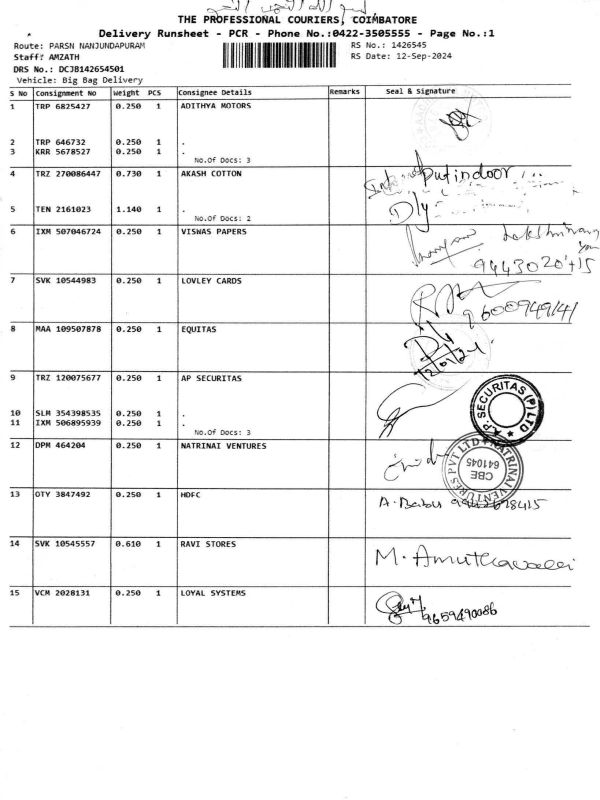 THE PROFESSIONAL COURIERS, COIMBATORE
Delivery Runsheet - PCR - Phone No.:0422-3505555 - Page No.:1
Route: PARSN NANJUNDAPURAM RS No.: 1426545
Staff: AMZATH RS Date: 12-Sep-2024
DRS No.: DCJB142654501
Vehicle: Big Bag Delivery
S No Consignment No Weight PCS Consignee Details Remarks Seal & Signature
1 TRP 6825427 0.250 1 ADITHYA MOTORS
2 TRP 646732 0.250 1 .
3 KRR 5678527 0.250 1 .
No.Of Docs: 3
4 TRZ 270086447 0.730 1 AKASH COTTON
Putindoor
5 TEN 2161023 1.140 1 .
Dly
No.Of Docs: 2
6 IXM 507046724 0.250 1 VISWAS PAPERS
7 SVK 10544983 0.250 1 LOVLEY CARDS
9600949141
8 MAA 109507878 0.250 1 EQUITAS
9 TRZ 120075677 0.250 1 AP SECURITAS
A.P. SECURITAS (P) LTD
10 SLM 354398535 0.250 1 .
11 IXM 506895939 0.250 1 .
No.Of Docs: 3
12 DPM 464204 0.250 1 NATRINAI VENTURES
NATRINAI VENTURES PVT LTD
CBE
641045
13 OTY 3847492 0.250 1 HDFC
A. Babu
14 SVK 10545557 0.610 1 RAVI STORES
M. Amuthavalli
15 VCM 2028131 0.250 1 LOYAL SYSTEMS
9659490086